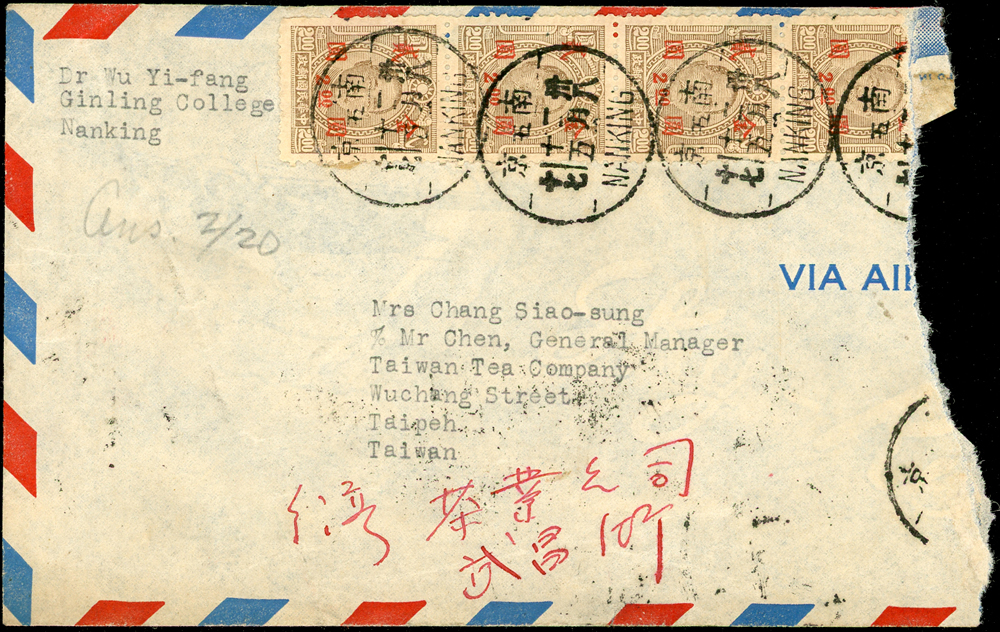 Dr Wu Yi-fang
Ginling College
Nanking
南京
NANKING
南京
NANKING
南京
NANKING
南
京
2.00
2.00
2.00
2.00
Ans. 2/20
VIA AI
Mrs Chang Siao-sung
% Mr Chen, General Manager
Taiwan Tea Company
Wuchang Street
Taipeh
Taiwan
台湾 茶業公司
武昌街
京